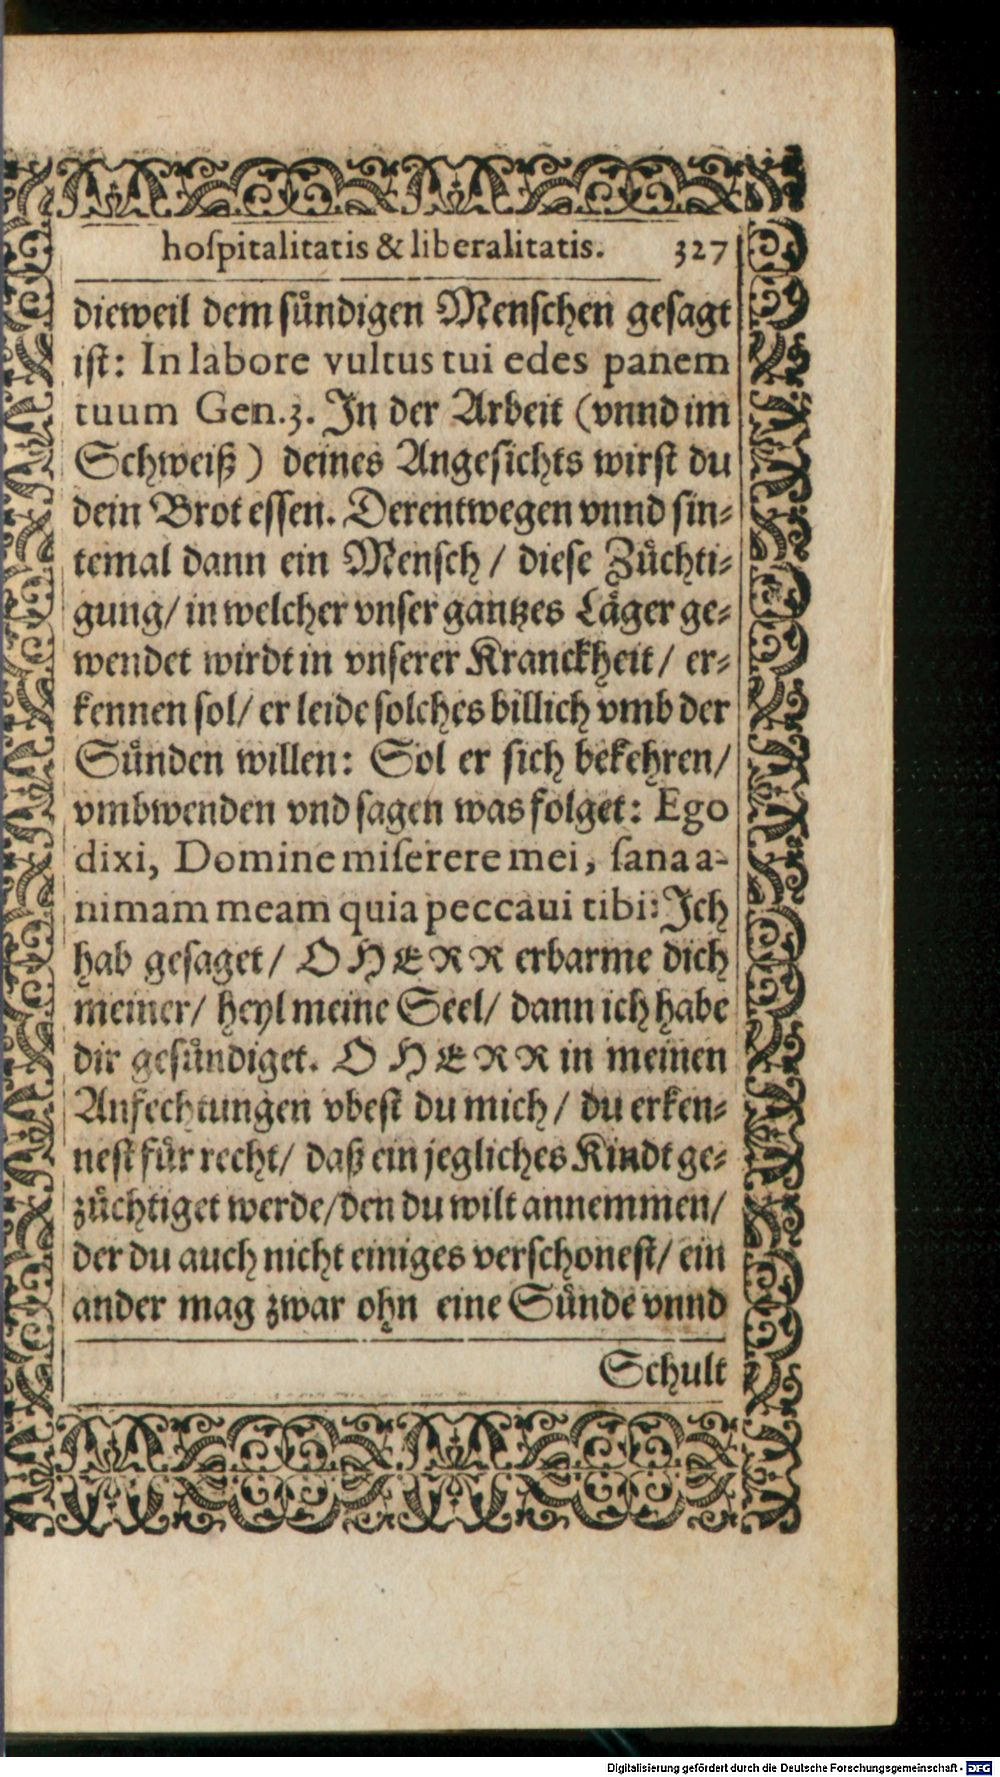 hoſpitalitatis & liberalitatis. 327
dieweil dem ſuͤndigen Menſchen geſagt
iſt: In labore vultus tui edes panem
tuum Gen. 3. In der Arbeit (vnnd im
Schweiß) deines Angeſichts wirſt du
dein Brot eſſen. Derentwegen vnnd ſin⸗
temal dann ein Menſch / dieſe Zuͤchti⸗
gung / in welcher vnſer gantzes Laͤger ge⸗
wendet wirdt in vnſerer Kranckheit / er⸗
kennen ſol / er leide ſolches billich vmb der
Suͤnden willen: Sol er ſich bekehren /
vmbwenden vnd ſagen was folget: Ego
dixi, Domine miſerere mei, ſana a-
nimam meam quia peccaui tibi: Ich
hab geſaget / O HERR erbarme dich
meiner / heyl meine Seel / dann ich habe
dir geſuͤndiget. O HERR in meinen
Anfechtungen vbeſt du mich / du erken⸗
neſt fuͤr recht / daß ein jegliches Kindt ge⸗
zuͤchtiget werde / den du wilt annemmen /
der du auch nicht einiges verſchoneſt / ein
ander mag zwar ohn eine Suͤnde vnnd
Schult
Digitalisierung gefördert durch die Deutsche Forschungsgemeinschaft - DFG